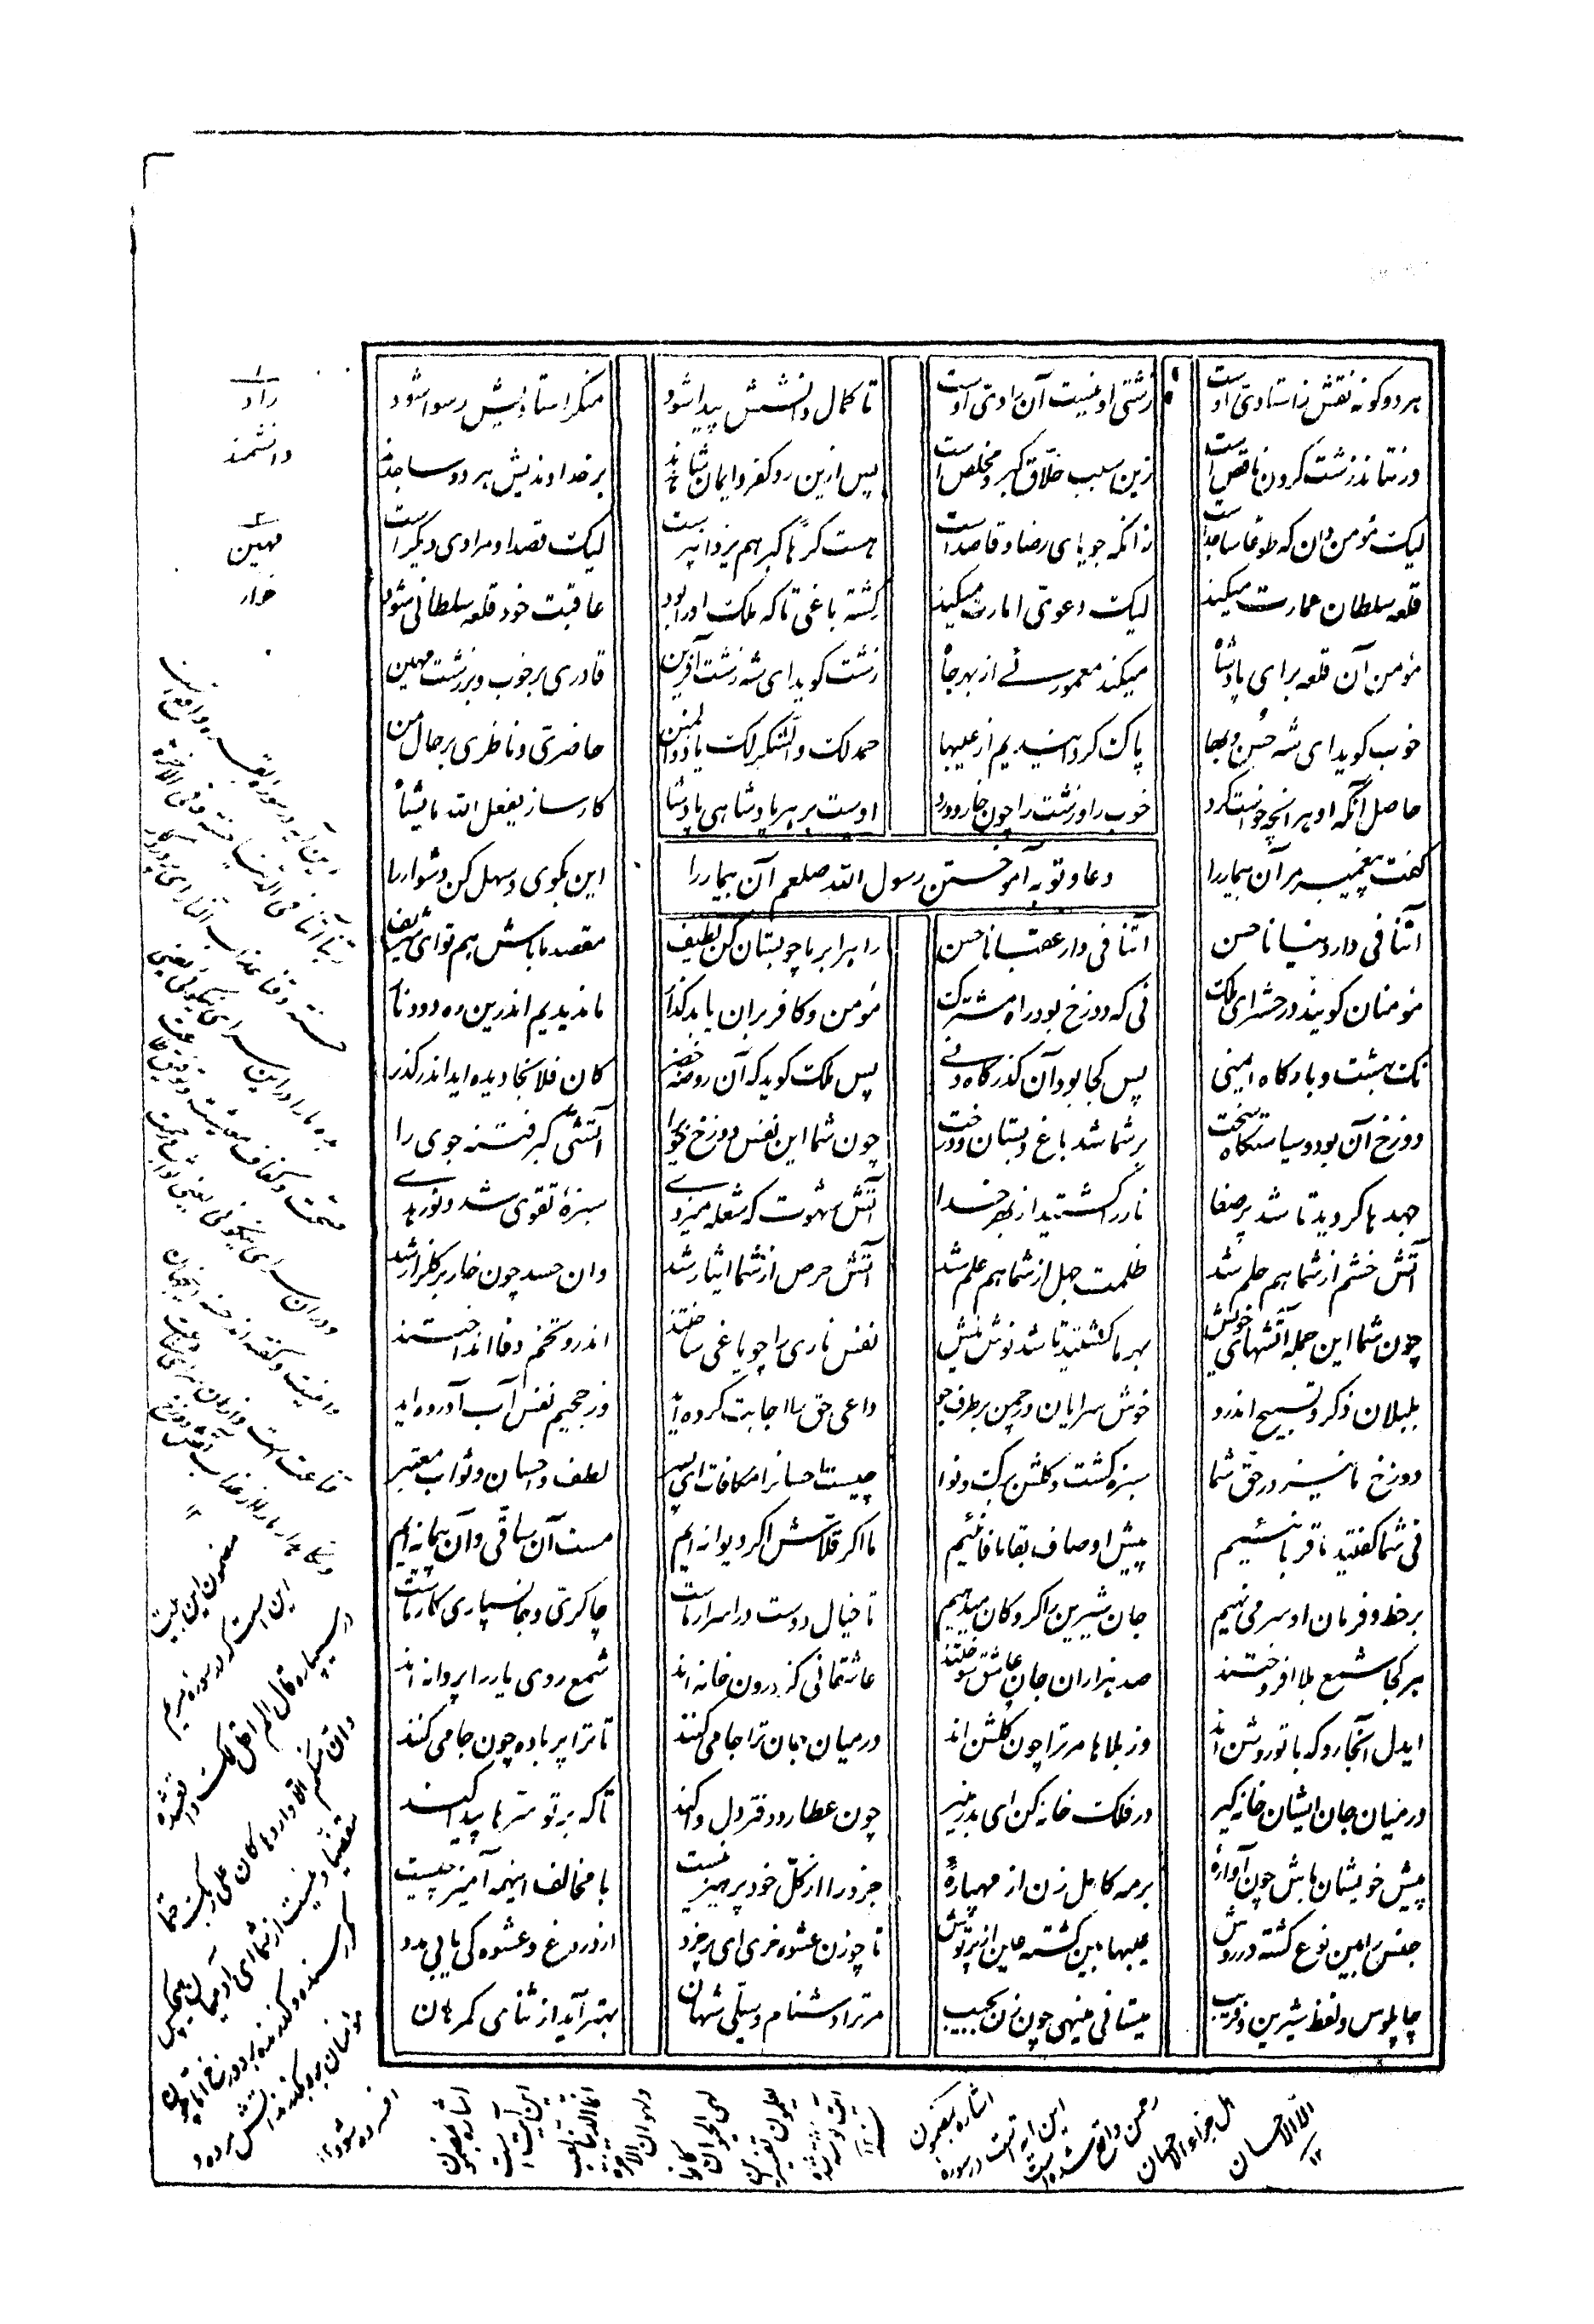 هر دو گونه نقش ز استادی اوست زشتی او نیست آن رادی اوست تا کمال دانشش پیدا شود منکر استادیش رسوا شود
ور نتاند زشت کردن ناقص است زین سبب خلّاق گبر و مخلص است پس ازین رو کفر و ایمان شاهدند بر خداوندیش هر دو ساجدند
لیک مؤمن دان که طوعا ساجدست زانکه جویای رضا و قاصد است هست کرهاً گبر هم یزدان پرست لیک قصد او مرادی دیگر است
قلعه سلطان عمارت میکند لیک دعوی امارت میکند گشته باغی تا که ملک او را بود عاقبت خود قلعه سلطانی شود
مؤمن آن قلعه برای پادشاه میکند معمور نی از بهر جاه زشت گوید ای شه زشت آفرین قادری بر خوب و بر زشت مهین
خوب گوید ای شه حسن و بها پاک گردانیدیم از عیبها حمد لک والشکر لک یا ذوالمنن حاضری و ناظری بر حال من
حاصل آنکه او هر آنچه خواست کرد خوب را و زشت را چون خار و ورد اوست بر هر پادشاهی پادشا کارساز یفعل الله ما یشا
دعا و توبه آموختن رسول الله صلعم آن بیمار را
گفت پیغمبر مر آن بیمار را این بگوی و سهل کن دشوار را
آتنا فی دار دنیانا حسن آتنا فی دار عقبانا حسن راه را بر ما چو بستان کن لطیف مقصد ما باش هم تو ای شریف
مؤمنان گویند در حشر ای ملک نی که دوزخ بود راه مشترک مؤمن و کافر بر آن یابد گذار ما ندیدیم اندرین ره دود و نار
نک بهشت و بارگاه ایمنی پس کجا بود آن گذرگاه دنی پس ملک گوید که آن روضه خضر کان فلانجا دیده‌اید اندر گذر
دوزخ آن بود و سیاستگاه سخت بر شما شد باغ و بستان و درخت چون شما این نفس دوزخ خوی را آتشی گبر فتنه جوی را
جهدها کردید تا شد پر صفا نار را کشتید از بهر خدا آتش شهوت که شعله میزدی سبزهٔ تقوی شد و نور هدی
آتش خشم از شما هم حلم شد ظلمت جهل از شما هم علم شد آتش حرص از شما ایثار شد وان حسد چون خار بد گلزار شد
چون شما این جمله آتشهای خویش بهر ما کشتید تا شد نوش نیش نفس ناری را چو باغی ساختند اندرو تخم وفا انداختند
بلبلان ذکر و تسبیح اندرو خوش سرایان در چمن بر طرف جو داعی حق را اجابت کرده‌اید در جحیم نفس آب آورده‌اید
دوزخ ما نیز در حق شما سبزه گشت و گلشن و برگ و نوا چیست احسانرا مکافات ای پسر لطف و احسان و ثواب معتبر
نی شما گفتید ما قربانئیم پیش اوصاف بقا ما فانئیم ما اگر قلّاش اگر دیوانه‌ایم مست آن ساقی و آن پیمانه‌ایم
بر خط و فرمان او سر می نهیم جان شیرین را گروگان میدهیم تا خیال دوست در اسرار ماست چاکری و جانسپاری کار ماست
هر کجا شمع بلا افروختند صد هزاران جان عاشق سوختند عاشقانی کز درون خانه‌اند شمع روی یار را پروانه‌اند
ایدل آنجا رو که با تو روشن‌اند وز بلاها مر ترا چون جوشن‌اند در میان جان ترا جا می کنند تا ترا پر باده چون جامی کنند
در میان جان ایشان خانه گیر در فلک خانه کن ای بدر منیر چون عطارد دفتر دل وا کنند تا که بر تو سرها پیدا کنند
پیش خویشان باش چون آوارهٔ بر مه کامل زن ار مه پارهٔ جزو را از کلّ خود پرهیز نیست با مخالف اینهمه آمیز چیست
جنس را بین نوع گشته در روش غیبها بین گشته عین از پرتوش تا چو زن عشوه خری ای پر خرد از دروغ و عشوه کی یابی مدد
چاپلوس و لفظ شیرین و فریب میستانی مینهی چون زن بجیب مر ترا دشنام و سیلی شهان بهتر آید از ثنای گمرهان
۱
راد
دانشمند
۲
مهین
خوار
مضمون این بیت
این است که در سوره مریم
در سیپاره قال الم اقل لک واقع شده
وان منکم الا واردها کان علی ربک حتما
مقضیا و نیست از شما ای آدمیان هیچکس
افسرده شود ۱۲
الا الاحسان ۱۲
هل جزاء الاحسان
این آیه است در سوره
رحمن واقع شده است
اشاره بمضمون